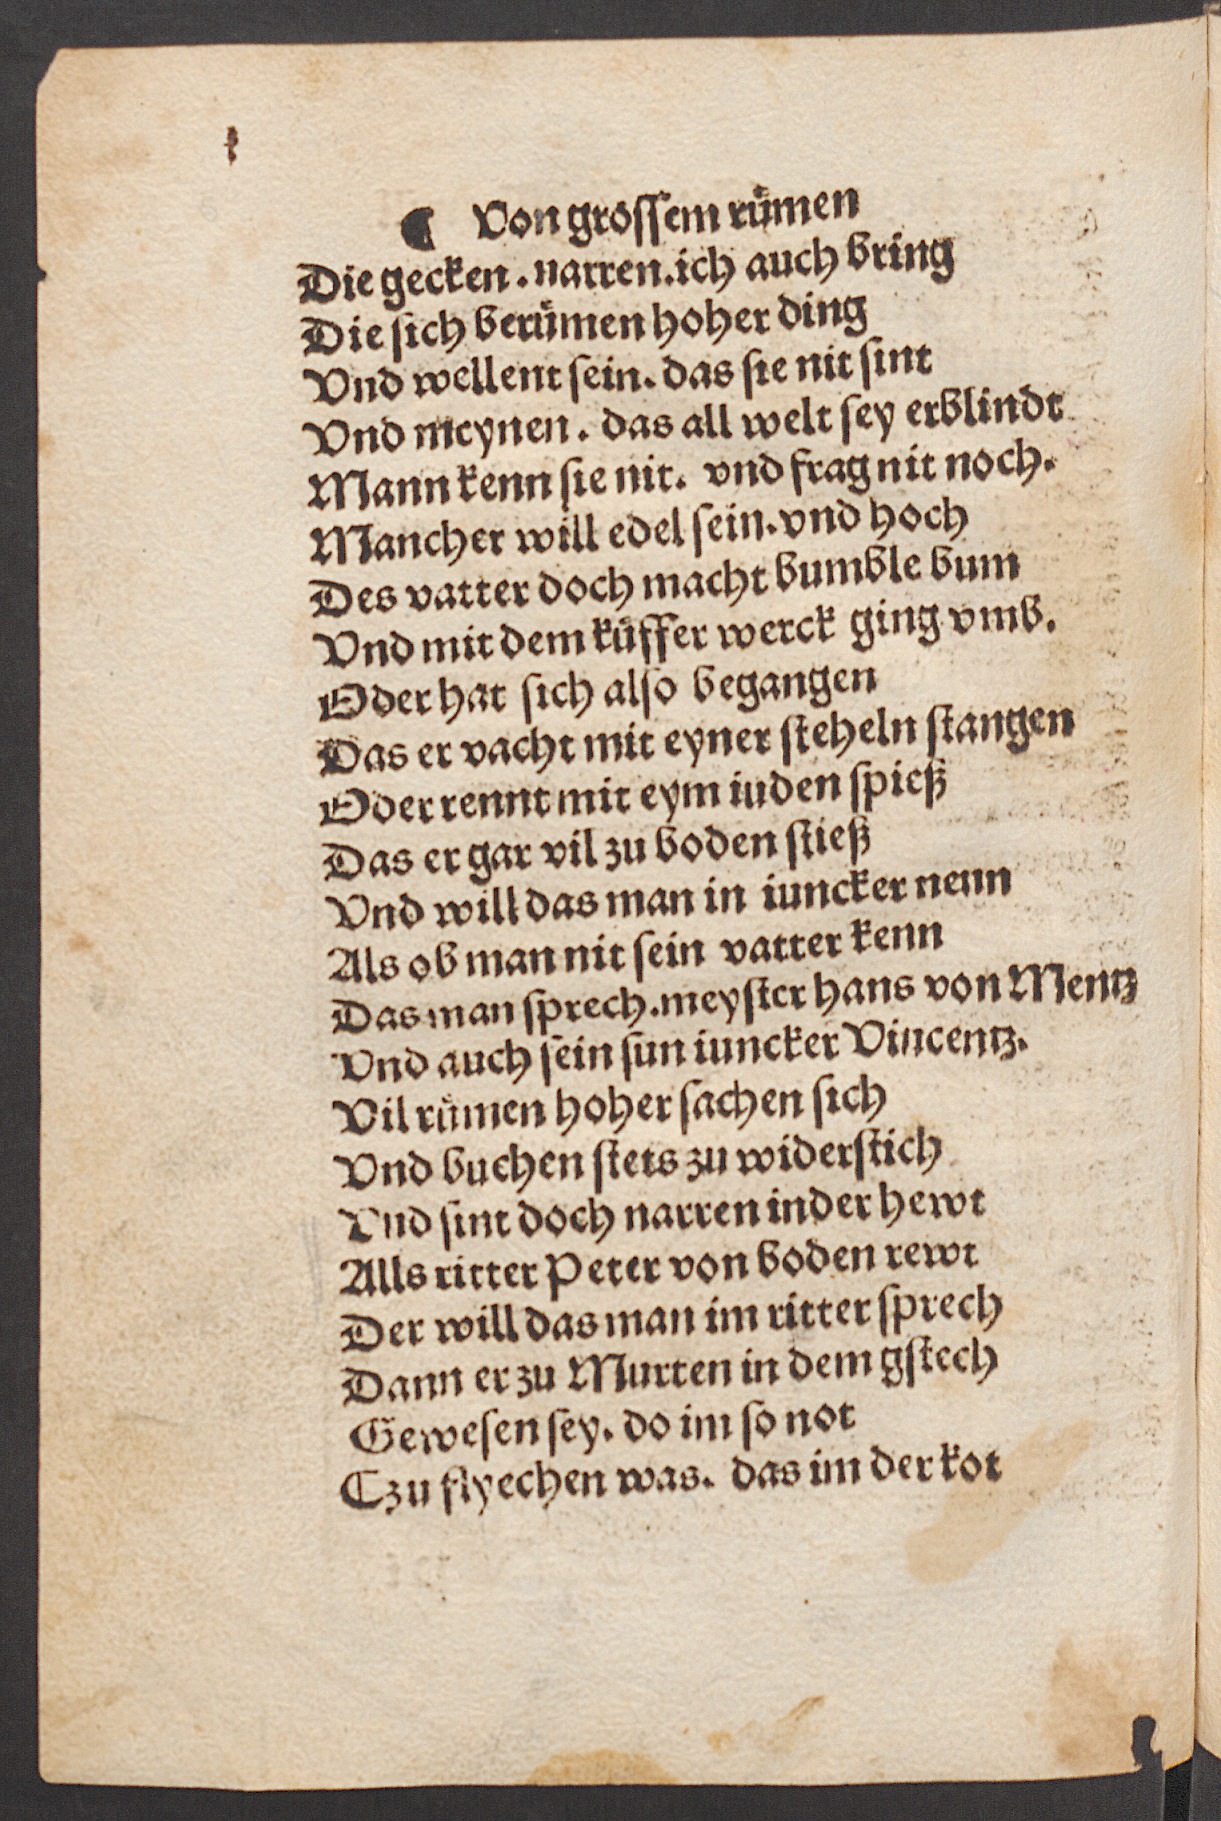 ¶ Von grossem rümen
Die gecken. narren. ich auch bring
Die sich berümen hoher ding
Vnd wellent sein. das sie nit sint
Vnd meynen. das all welt sey erblindt
Mann kenn sie nit. vnd frag nit noch.
Mancher will edel sein. vnd hoch
Des vatter doch macht bumble bum
Vnd mit dem küffer werck ging vmb.
Oder hat sich also begangen
Das er vacht mit eyner steheln stangen
Oder rennt mit eym iuden spieß
Das er gar vil zu boden stieß
Vnd will das man in iuncker nenn
Als ob man nit sein vatter kenn
Das man sprech. meyster hans von Mentz
Vnd auch sein sun iuncker Vincentz.
Vil rümen hoher sachen sich
Vnd buchen stets zu widerstich
Vnd sint doch narren in der hewt
Alls ritter Peter von boden rewt
Der will das man im ritter sprech
Dann er zu Murten in dem gstech
Gewesen sey. do im so not
Czu flyechen was. das im der kot